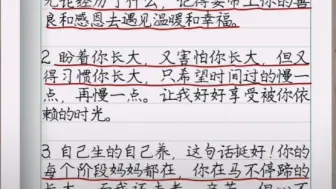 良和感恩去遇见温暖和幸福。
2.盼着你长大，又害怕你长大，但又
得习惯你长大，只希望时间过的慢一
点，再慢一点。让我好好享受被你依
赖的时光。
3.自己生的自己养，这句话挺好！你的
每个阶段妈妈都在，你在马不停蹄的